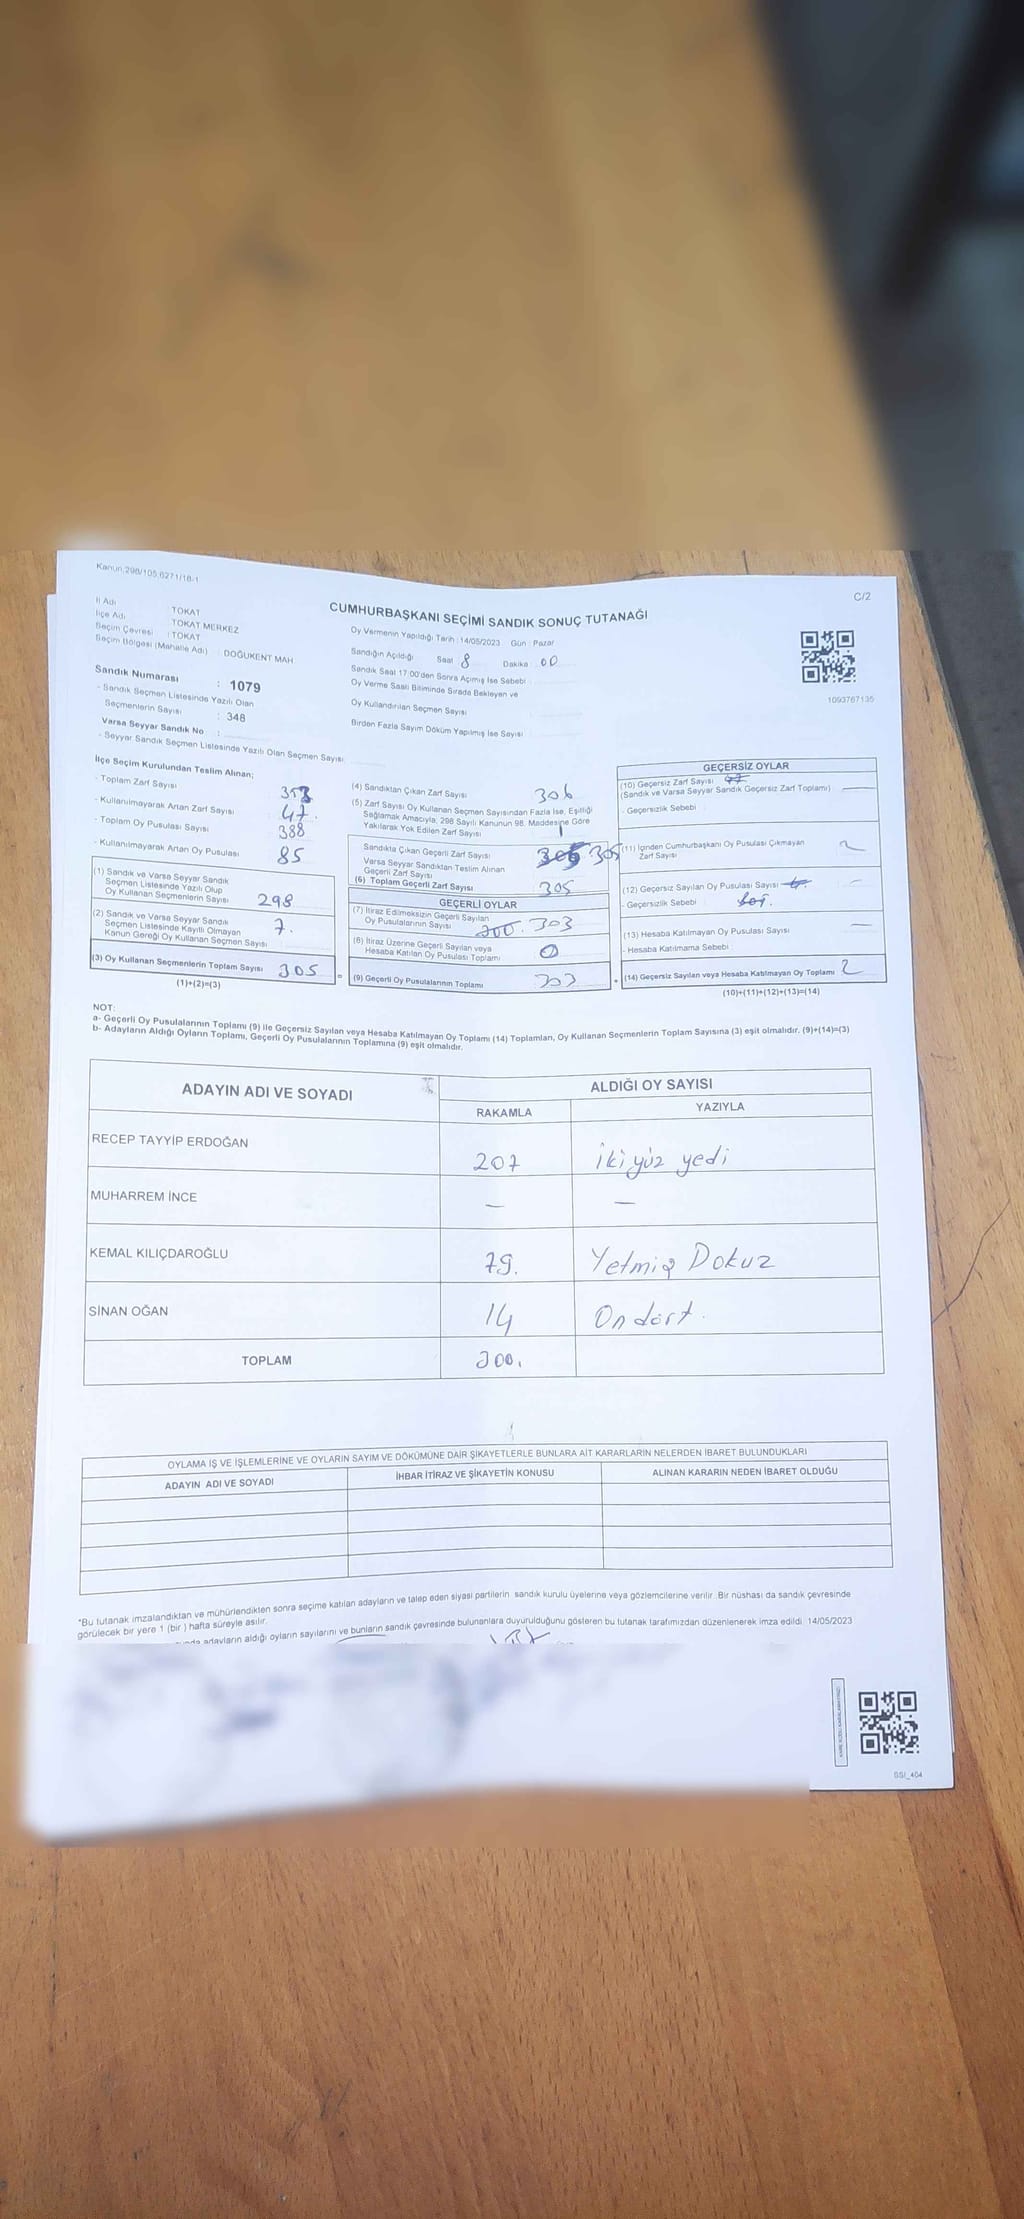 Kanun.298/105,6271/18-1
C/2
CUMHURBAŞKANI SEÇİMİ SANDIK SONUÇ TUTANAĞI
İl Adı : TOKAT
İlçe Adı : TOKAT MERKEZ
Seçim Çevresi : TOKAT
Seçim Bölgesi (Mahalle Adı) : DOĞUKENT MAH
Sandık Numarası : 1079
- Sandık Seçmen Listesinde Yazılı Olan
Seçmenlerin Sayısı : 348
Varsa Seyyar Sandık No :
- Seyyar Sandık Seçmen Listesinde Yazılı Olan Seçmen Sayısı:
Oy Vermenin Yapıldığı Tarih : 14/05/2023 Gün : Pazar
Sandığın Açıldığı Saat 8 Dakika : 00
Sandık Saat 17:00'den Sonra Açımış İse Sebebi :
Oy Verme Saati Bitiminde Sırada Bekleyen ve
Oy Kullandırılan Seçmen Sayısı
Birden Fazla Sayım Döküm Yapılmış İse Sayısı
1093767135
İlçe Seçim Kurulundan Teslim Alınan;
- Toplam Zarf Sayısı
- Kullanılmayarak Artan Zarf Sayısı 47.
- Toplam Oy Pusulası Sayısı 388
- Kullanılmayarak Artan Oy Pusulası 85
(1) Sandık ve Varsa Seyyar Sandık
Seçmen Listesinde Yazılı Olup
Oy Kullanan Seçmenlerin Sayısı 298
(2) Sandık ve Varsa Seyyar Sandık
Seçmen Listesinde Kayıtlı Olmayan
Kanun Gereği Oy Kullanan Seçmen Sayısı 7.
(3) Oy Kullanan Seçmenlerin Toplam Sayısı 305
(1)+(2)=(3)
(4) Sandıktan Çıkan Zarf Sayısı 306
(5) Zarf Sayısı Oy Kullanan Seçmen Sayısından Fazla İse, Eşitliği
Sağlamak Amacıyla, 298 Sayılı Kanunun 98. Maddesine Göre
Yakılarak Yok Edilen Zarf Sayısı 1
Sandıkta Çıkan Geçerli Zarf Sayısı 305 305
Varsa Seyyar Sandıktan Teslim Alınan
Geçerli Zarf Sayısı
(6) Toplam Geçerli Zarf Sayısı 305
GEÇERLİ OYLAR
(7) İtiraz Edilmeksizin Geçerli Sayılan
Oy Pusulalarının Sayısı 300. 303
(8) İtiraz Üzerine Geçerli Sayılan veya
Hesaba Katılan Oy Pusulası Toplamı 0
(9) Geçerli Oy Pusulalarının Toplamı 303
GEÇERSİZ OYLAR
(10) Geçersiz Zarf Sayısı
(Sandık ve Varsa Seyyar Sandık Geçersiz Zarf Toplamı) —
- Geçersizlik Sebebi
(11) İçinden Cumhurbaşkanı Oy Pusulası Çıkmayan
Zarf Sayısı 2
(12) Geçersiz Sayılan Oy Pusulası Sayısı —
- Geçersizlik Sebebi
(13) Hesaba Katılmayan Oy Pusulası Sayısı —
- Hesaba Katılmama Sebebi
(14) Geçersiz Sayılan veya Hesaba Katılmayan Oy Toplamı 2
(10)+(11)+(12)+(13)=(14)
NOT:
a- Geçerli Oy Pusulalarının Toplamı (9) ile Geçersiz Sayılan veya Hesaba Katılmayan Oy Toplamı (14) Toplamları, Oy Kullanan Seçmenlerin Toplam Sayısına (3) eşit olmalıdır. (9)+(14)=(3)
b- Adayların Aldığı Oyların Toplamı, Geçerli Oy Pusulalarının Toplamına (9) eşit olmalıdır.
ADAYIN ADI VE SOYADI ALDIĞI OY SAYISI
RAKAMLA YAZIYLA
RECEP TAYYİP ERDOĞAN 207 İki yüz yedi
MUHARREM İNCE — —
KEMAL KILIÇDAROĞLU 79. Yetmiş Dokuz
SİNAN OĞAN 14 On dört.
TOPLAM 300.
OYLAMA İŞ VE İŞLEMLERİNE VE OYLARIN SAYIM VE DÖKÜMÜNE DAİR ŞİKAYETLERLE BUNLARA AİT KARARLARIN NELERDEN İBARET BULUNDUKLARI
ADAYIN ADI VE SOYADI İHBAR İTİRAZ VE ŞİKAYETİN KONUSU ALINAN KARARIN NEDEN İBARET OLDUĞU
*Bu tutanak imzalandıktan ve mühürlendikten sonra seçime katılan adayların ve talep eden siyasi partilerin sandık kurulu üyelerine veya gözlemcilerine verilir. Bir nüshası da sandık çevresinde
görülecek bir yere 1 (bir ) hafta süreyle asılır.
adayların aldığı oyların sayılarını ve bunların sandık çevresinde bulunanlara duyurulduğunu gösteren bu tutanak tarafımızdan düzenlenerek imza edildi. 14/05/2023
SSİ_404